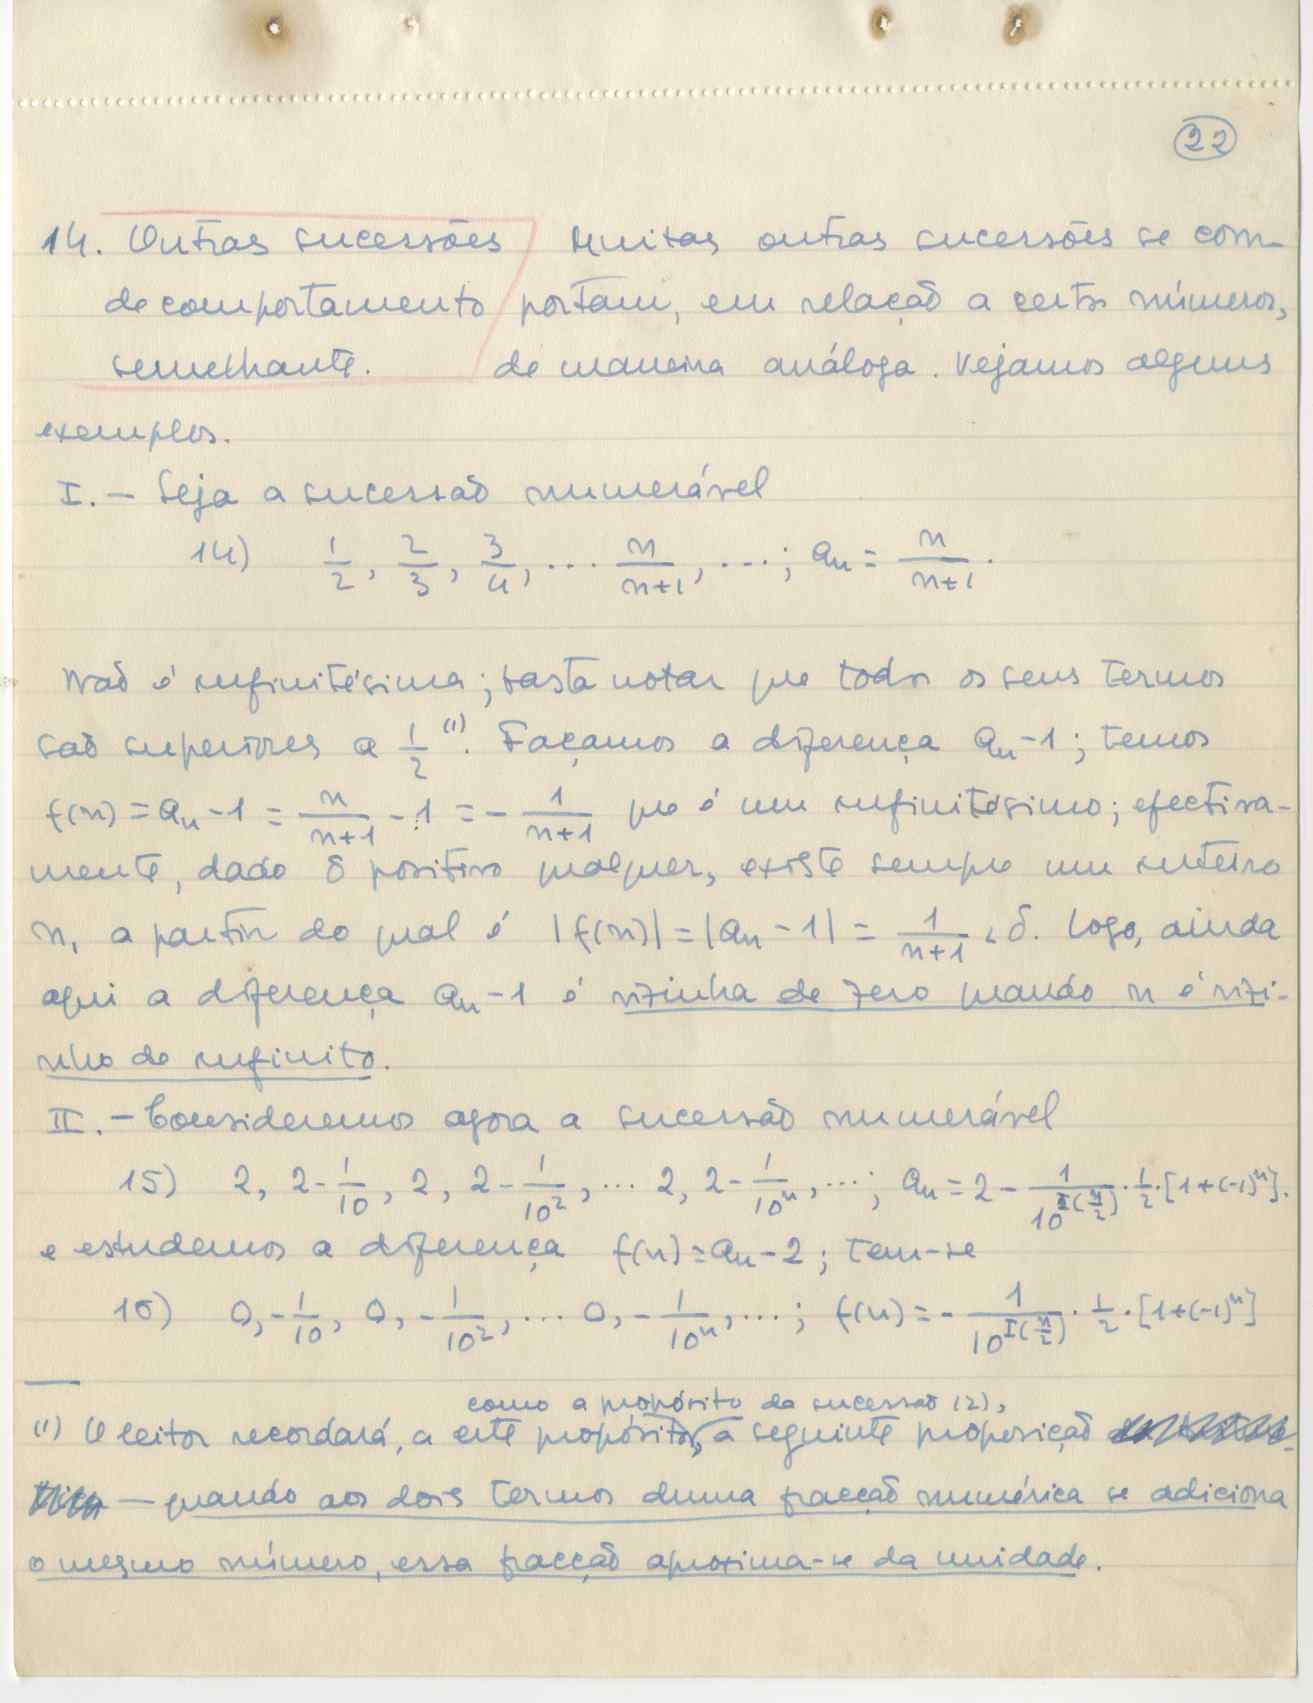 22
14. Outras sucessões Muitas outras sucessões se com-
de comportamento portam, em relação a certos números,
semelhante. de maneira análoga. Vejamos alguns
exemplos.
I. — Seja a sucessão numerável
14) 1/2, 2/3, 3/4, ... n/(n+1), ...; aₙ = n/(n+1).
Não é infinitésima; basta notar que todos os seus termos
são superiores a 1/2 ⁽¹⁾. Façamos a diferença aₙ-1; temos
f(n) = aₙ-1 = n/(n+1) - 1 = - 1/(n+1) que é um infinitésimo; efectiva-
mente, dado δ positivo qualquer, existe sempre um inteiro
n₁ a partir do qual é |f(n)| = |aₙ-1| = 1/(n+1) < δ. Logo, ainda
aqui a diferença aₙ-1 é vizinha de zero quando n é vizi-
nho de infinito.
II. — Consideremos agora a sucessão numerável
15) 2, 2-1/10, 2, 2-1/10², ... 2, 2-1/10ⁿ, ...; aₙ = 2 - 1/10^{I(n/2)} · 1/2 · [1+(-1)ⁿ].
e estudemos a diferença f(n) = aₙ-2; tem-se
16) 0, -1/10, 0, -1/10², ... 0, -1/10ⁿ, ...; f(n) = - 1/10^{I(n/2)} · 1/2 · [1+(-1)ⁿ]
como a propósito da sucessão 12),
(1) O leitor recordará, a este propósito, a seguinte proposição
— quando aos dois termos duma fracção numérica se adiciona
o mesmo número, essa fracção aproxima-se da unidade.